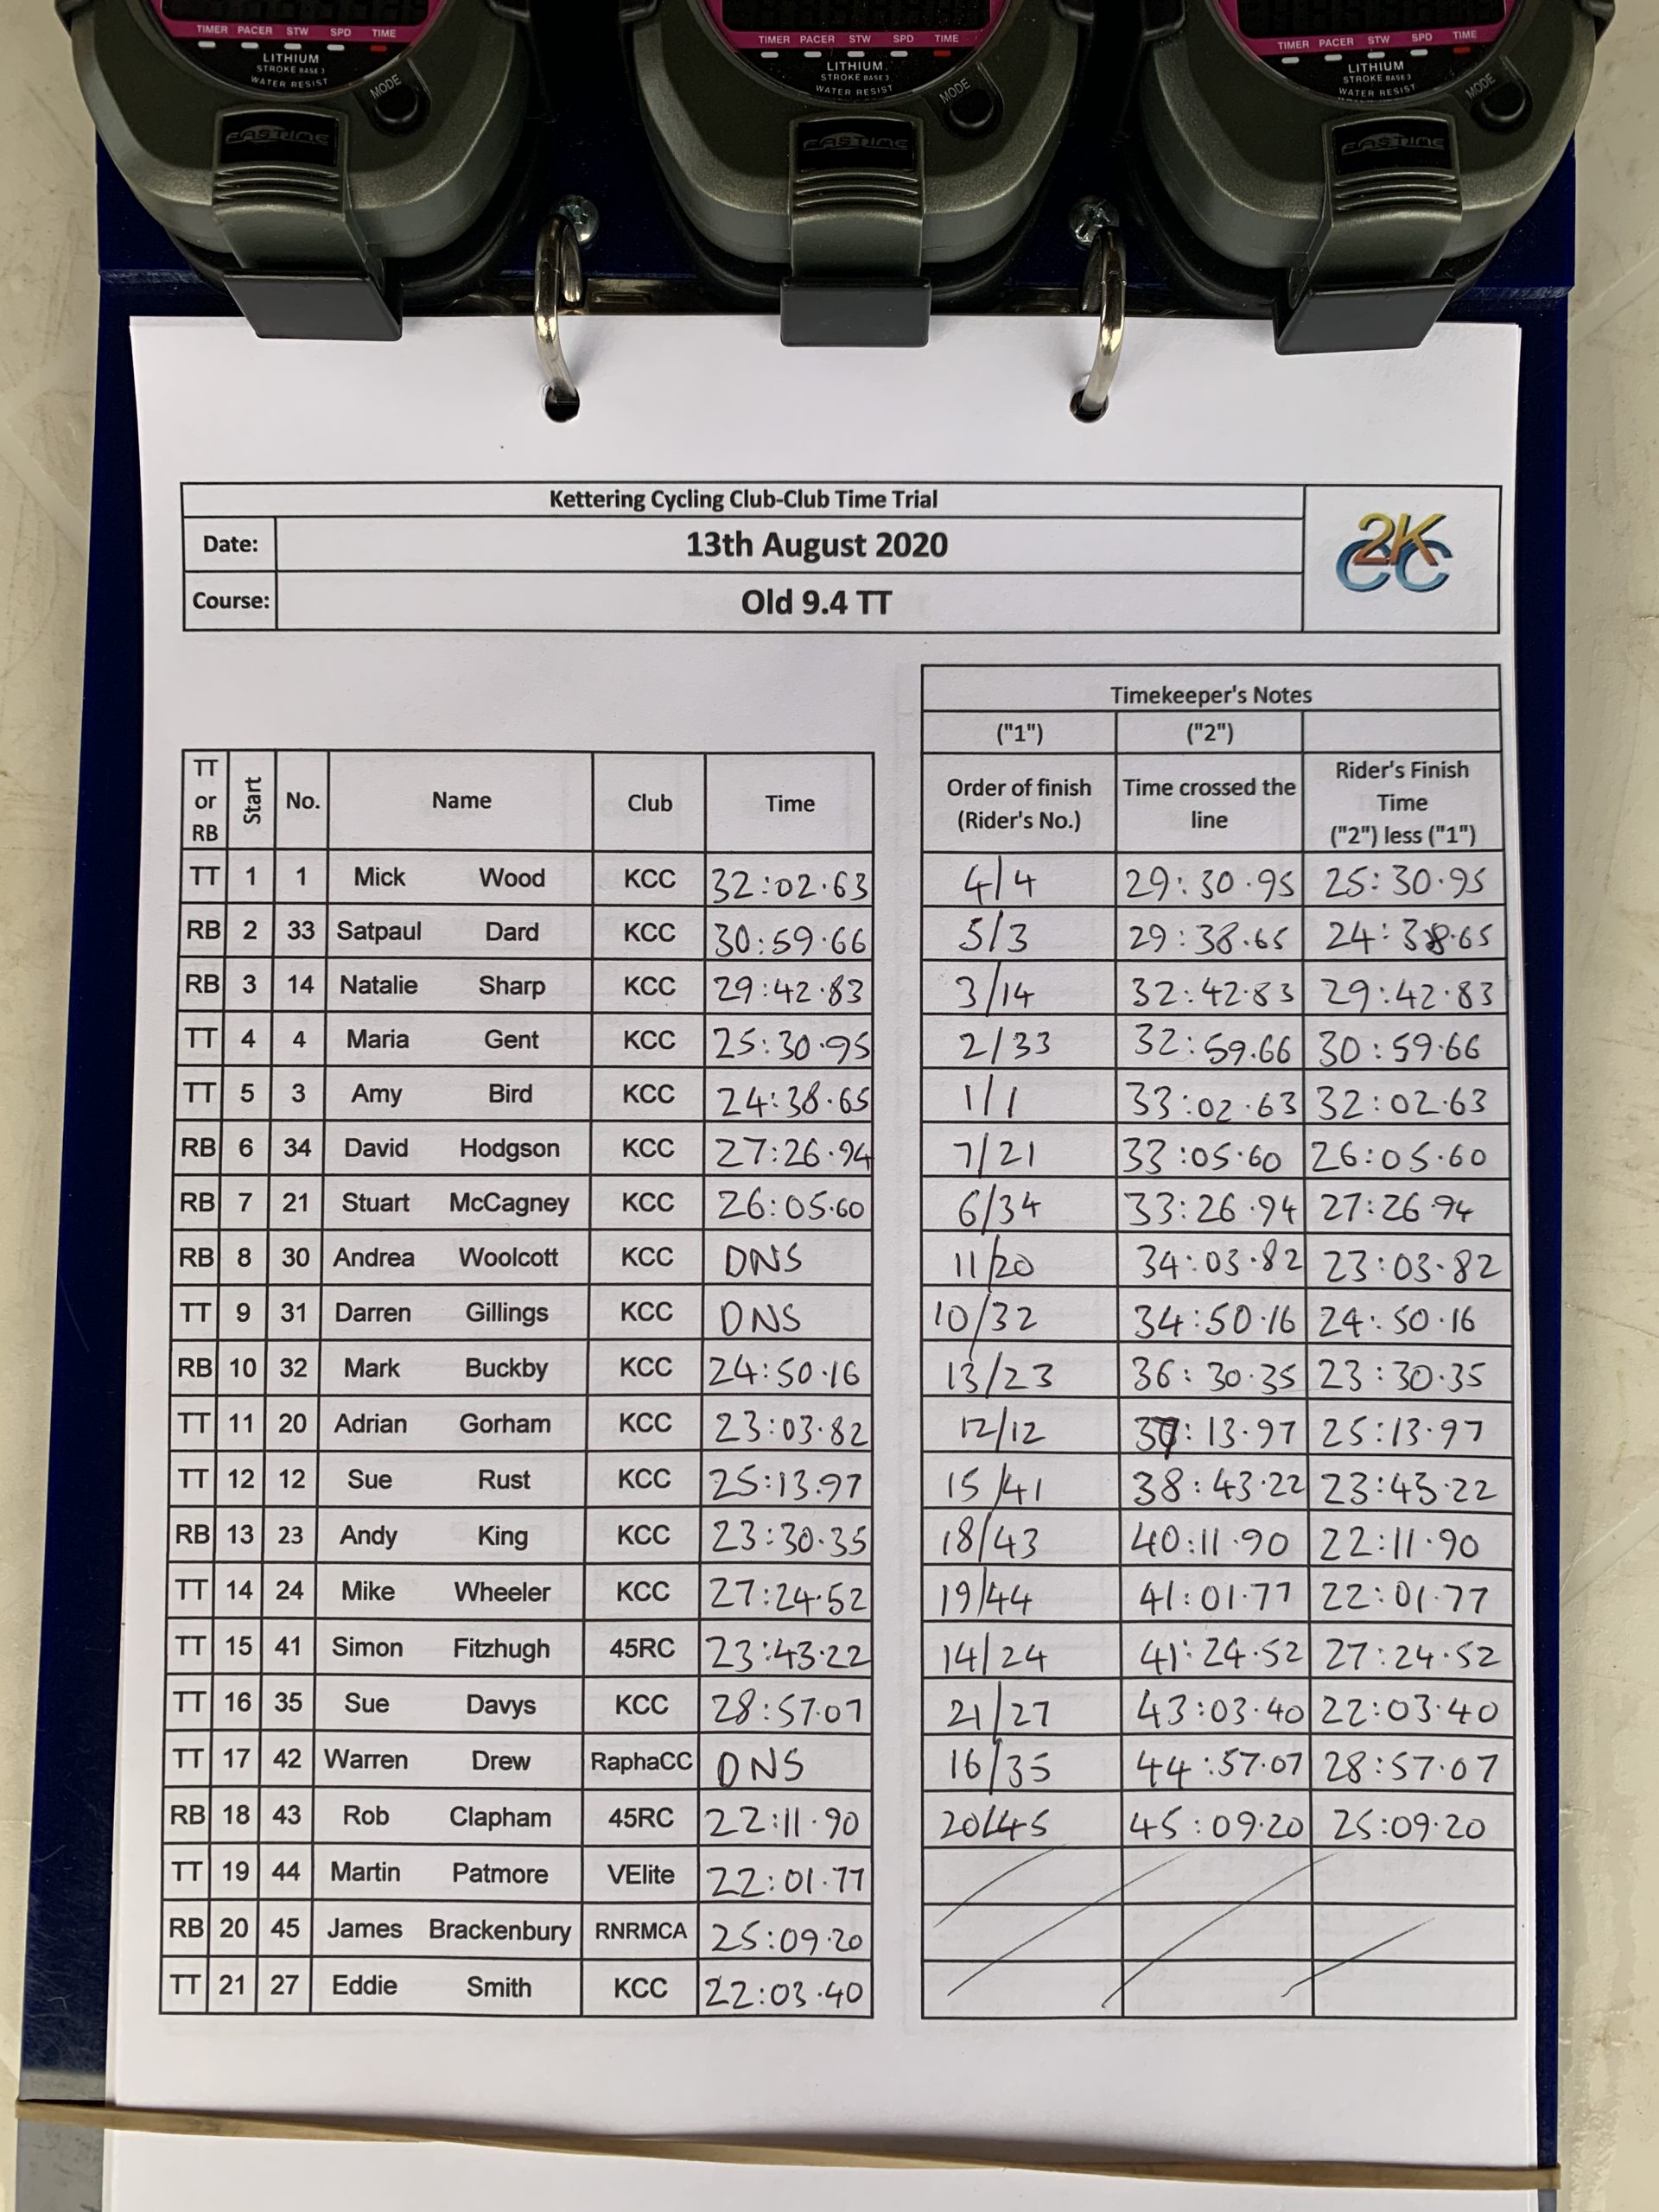 TIMER PACER STW SPD TIME
LITHIUM
STROKE BASE 3
WATER RESIST
MODE
FASTIME
TIMER PACER STW SPD TIME
LITHIUM
STROKE BASE 3
WATER RESIST
MODE
FASTIME
TIMER PACER STW SPD TIME
LITHIUM
STROKE BASE 3
WATER RESIST
MODE
FASTIME
Kettering Cycling Club-Club Time Trial
2KCC
Date: 13th August 2020
Course: Old 9.4 TT
Timekeeper's Notes
("1") ("2")
TT or RB Start No. Name Club Time Order of finish (Rider's No.) Time crossed the line Rider's Finish Time ("2") less ("1")
TT 1 1 Mick Wood KCC 32:02.63 4/4 29:30.95 25:30.95
RB 2 33 Satpaul Dard KCC 30:59.66 5/3 29:38.65 24:38.65
RB 3 14 Natalie Sharp KCC 29:42.83 3/14 32:42.83 29:42.83
TT 4 4 Maria Gent KCC 25:30.95 2/33 32:59.66 30:59.66
TT 5 3 Amy Bird KCC 24:38.65 1/1 33:02.63 32:02.63
RB 6 34 David Hodgson KCC 27:26.94 7/21 33:05.60 26:05.60
RB 7 21 Stuart McCagney KCC 26:05.60 6/34 33:26.94 27:26.94
RB 8 30 Andrea Woolcott KCC DNS 11/20 34:03.82 23:03.82
TT 9 31 Darren Gillings KCC DNS 10/32 34:50.16 24:50.16
RB 10 32 Mark Buckby KCC 24:50.16 13/23 36:30.35 23:30.35
TT 11 20 Adrian Gorham KCC 23:03.82 12/12 37:13.97 25:13.97
TT 12 12 Sue Rust KCC 25:13.97 15/41 38:43.22 23:43.22
RB 13 23 Andy King KCC 23:30.35 18/43 40:11.90 22:11.90
TT 14 24 Mike Wheeler KCC 27:24.52 19/44 41:01.77 22:01.77
TT 15 41 Simon Fitzhugh 45RC 23:43.22 14/24 41:24.52 27:24.52
TT 16 35 Sue Davys KCC 28:57.07 21/27 43:03.40 22:03.40
TT 17 42 Warren Drew RaphaCC DNS 16/35 44:57.07 28:57.07
RB 18 43 Rob Clapham 45RC 22:11.90 20/45 45:09.20 25:09.20
TT 19 44 Martin Patmore VElite 22:01.77
RB 20 45 James Brackenbury RNRMCA 25:09.20
TT 21 27 Eddie Smith KCC 22:03.40